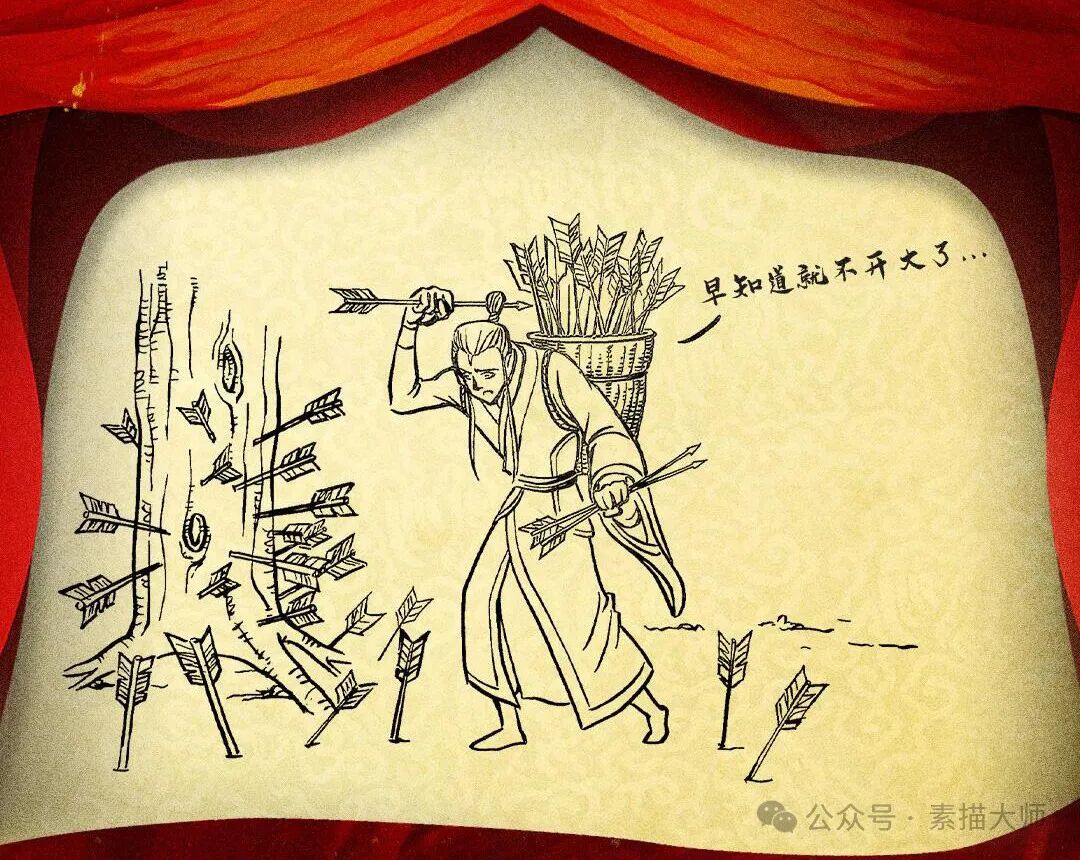 早知道就不开大了...
公众号·素描大师